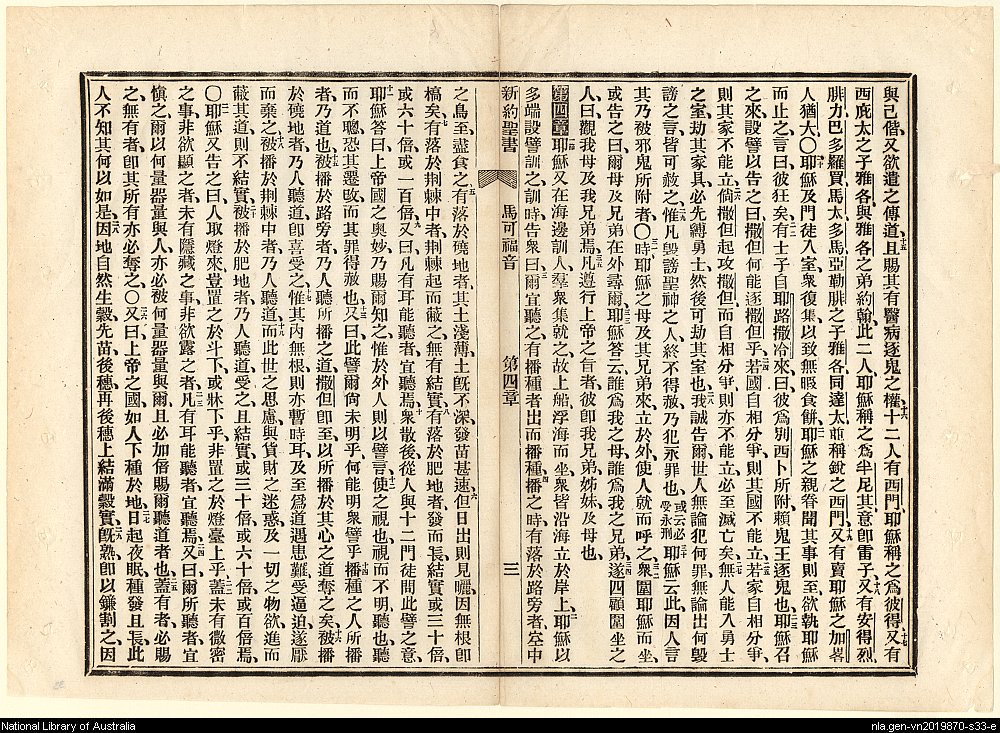 與己偕、又欲遣之傳道、且賜其有醫病逐鬼之權、十二人有西門、耶穌稱之爲彼得、又有
西庇太之子雅各與雅各之弟約翰、此二人耶穌稱之爲半尼其、意卽雷子、又有安得烈
腓力巴多羅買馬太多馬亞勒腓之子雅各同達太並稱銳之西門、又有賣耶穌之加畧
人猶大、○耶穌及門徒入室、衆復集以致無暇食餅、耶穌之親眷聞其事則至、欲執耶穌
而止之、言曰、彼狂矣、有士子自耶路撒冷來曰、彼爲別西卜所附、賴鬼王逐鬼也、耶穌召
之來、設譬以告之曰、撒但何能逐撒但乎、若國自相分爭、則其國不能立、若家自相分爭、
則其家不能立、倘撒但起攻撒但、而自相分爭、則亦不能立、必至滅亡矣、無人能入勇士
之室、劫其家具、必先縛勇士、然後可劫其室也、我誠告爾、世人無論犯何罪、無論出何毀
謗之言、皆可赦之、惟凡毀謗聖神之人、終不得赦、乃犯永罪也、或云必受永刑 耶穌云此、因人言
其乃被邪鬼所附者、○時耶穌之母及其兄弟來、立於外、使人就而呼之、衆圍耶穌而坐、
或告之曰、爾母及兄弟在外尋爾、耶穌答云、誰爲我之母、誰爲我之兄弟、遂四顧圍坐之
人曰、觀我母及我兄弟焉、凡遵行上帝之旨者、彼卽我兄弟姊妹及母也、
第四章 耶穌又在海邊訓人、羣衆集就之、故上船浮海而坐、衆皆沿海立於岸上、耶穌以
多端設譬訓之、訓時告衆曰、爾宜聽之、有播種者出而播種、播之時、有落於路旁者、空中
新約聖書 馬可福音 第四章 三
之鳥至盡食之、有落於磽地者、其土淺薄、土旣不深、發苗甚速、但日出則見曬、因無根卽
槁矣、有落於荆棘中者、荆棘起而蔽之、無有結實、有落於肥地者、發而長、結實或三十倍、
或六十倍、或一百倍、又曰、凡有耳能聽者、宜聽焉、衆散後、從人與十二門徒問此譬之意、
耶穌答曰、上帝國之奧妙、乃賜爾知之、惟於外人、則以譬言、使之視也視而不明、聽也聽
而不聰、恐其遷改、而其罪得赦也、又曰、此譬爾尙未明乎、何能明衆譬乎、播種之人所播
者乃道也、被播於路旁者、乃人聽所播之道、撒但卽至、以所播於其心之道奪之矣、被播
於磽地者、乃人聽道、卽喜受之、惟其內無根、則亦暫時耳、及至爲道遇患難受逼迫、遂厭
而棄之、被播於荆棘中者、乃人聽道、而此世之思慮、與貨財之迷惑、及一切之物欲、進而
蔽其道、則不結實、被播於肥地者、乃人聽道受之、且結實、或三十倍、或六十倍、或百倍焉、
○耶穌又告之曰、人取燈來、豈置之於斗下、或牀下乎、非置之於燈臺上乎、蓋未有微密
之事、非欲顯之者、未有隱藏之事、非欲露之者、凡有耳能聽者、宜聽焉、又曰、爾所聽者宜
愼之、爾以何量器量與人、亦必被何量器量與爾、且必加倍賜爾聽道者也、蓋有者、必賜
之、無有者、卽其所有亦必奪之、○又曰、上帝之國、如人下種於地、日起夜眠、種發且長、此
人不知其何以如是、因地自然生穀、先苗後穗、再後穗上結滿穀實、旣熟、卽以鐮割之、因
National Library of Australia
nla.gen-vn2019870-s33-e